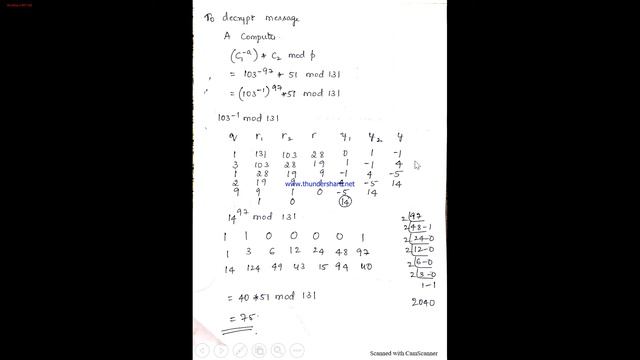 To decrypt message
A Computes
(C₁⁻ᵃ) * C₂ mod p
= 103⁻⁹⁷ * 51 mod 131
= (103⁻¹)⁹⁷ * 51 mod 131
103⁻¹ mod 131
q r₁ r₂ r y₁ y₂ y
1 131 103 28 0 1 -1
3 103 28 19 1 -1 4
1 28 19 9 -1 4 -5
2 19 9 1 4 -5 14
9 9 1 0 -5 14
1 0 14
www.thundershare.net
14⁹⁷ mod 131
1 1 0 0 0 0 1
1 3 6 12 24 48 97
14 124 49 43 15 94 40
2 97
2 48-1
2 24-0
2 12-0
2 6-0
2 3-0
1-1
2040
= 40 * 51 mod 131
= 75.
Scanned with CamScanner